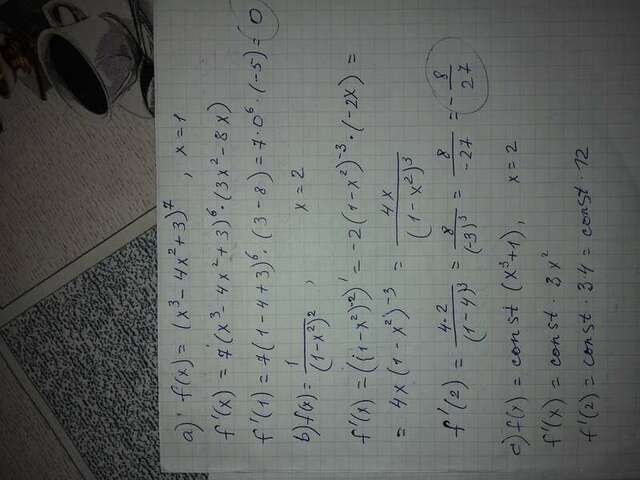 a) f(x) = (x³ - 4x² + 3)⁷ , x = 1
f'(x) = 7(x³ - 4x² + 3)⁶ · (3x² - 8x)
f'(1) = 7(1 - 4 + 3)⁶ · (3 - 8) = 7 · 0⁶ · (-5) = 0
b) f(x) = 1/(1-x²)² , x = 2
f'(x) = ((1-x²)⁻²)' = -2(1-x²)⁻³ · (-2x) =
= 4x(1-x²)⁻³ = 4x/(1-x²)³
f'(2) = 4·2/(1-4)³ = 8/(-3)³ = 8/-27 = -8/27
c) f(x) = const (x³+1), x = 2
f'(x) = const · 3x²
f'(2) = const · 3·4 = const · 12